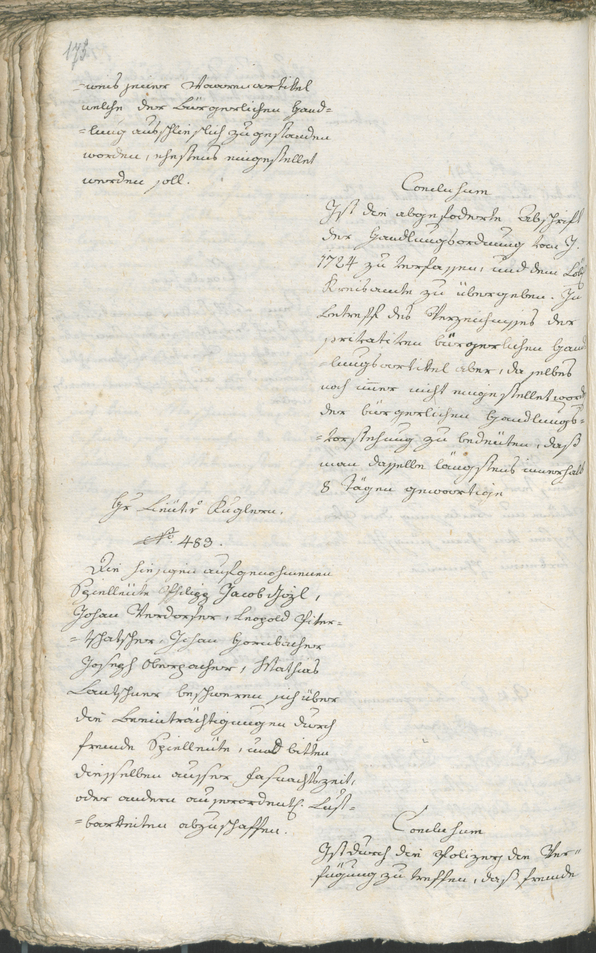 173.
-weis jener Waarenartikel
welche der bürgerlichen Hand=
=lung ausschlieslich zugestanden
worden, ehestens eingestellet
werden soll.
Conclusum
Ist die abgefoderte Abschrift
der Handlungsordnung vom J.
1724 zu verfassen, und dem Löbl.
Kreisamte zu übergeben. In
Betreff des Verzeichnisses der
privativen bürgerlichen Hand
=lungsartikel aber, da selbes
noch immer nicht eingestellet word
der bürgerlichen Handlungs=
=vorstehung zu bedeuten, daß
man dasselbe längstens innerhalb
8. Tägen gewärtige
Hr. Kuglern.
No. 483.
Die hiesigen aufgenohmenen
Spielleüte Philipp Jacob
Johan Verdorfer, Leopold Piter=
=tschatscher, Johan Hornbacher
Joseph Oberpacher, Mathias
Lantschner beschweren sich über
die Beeinträchtigungen durch
fremde Spielleüte, und bitten
dieselben ausser Fasnachtszeit,
oder andern ausserordentl. Lust=
=barkeiten abzuschaffen.
Conclusum
Ist durch die Polizey die Ver=
fügung zu treffen, daß fremde